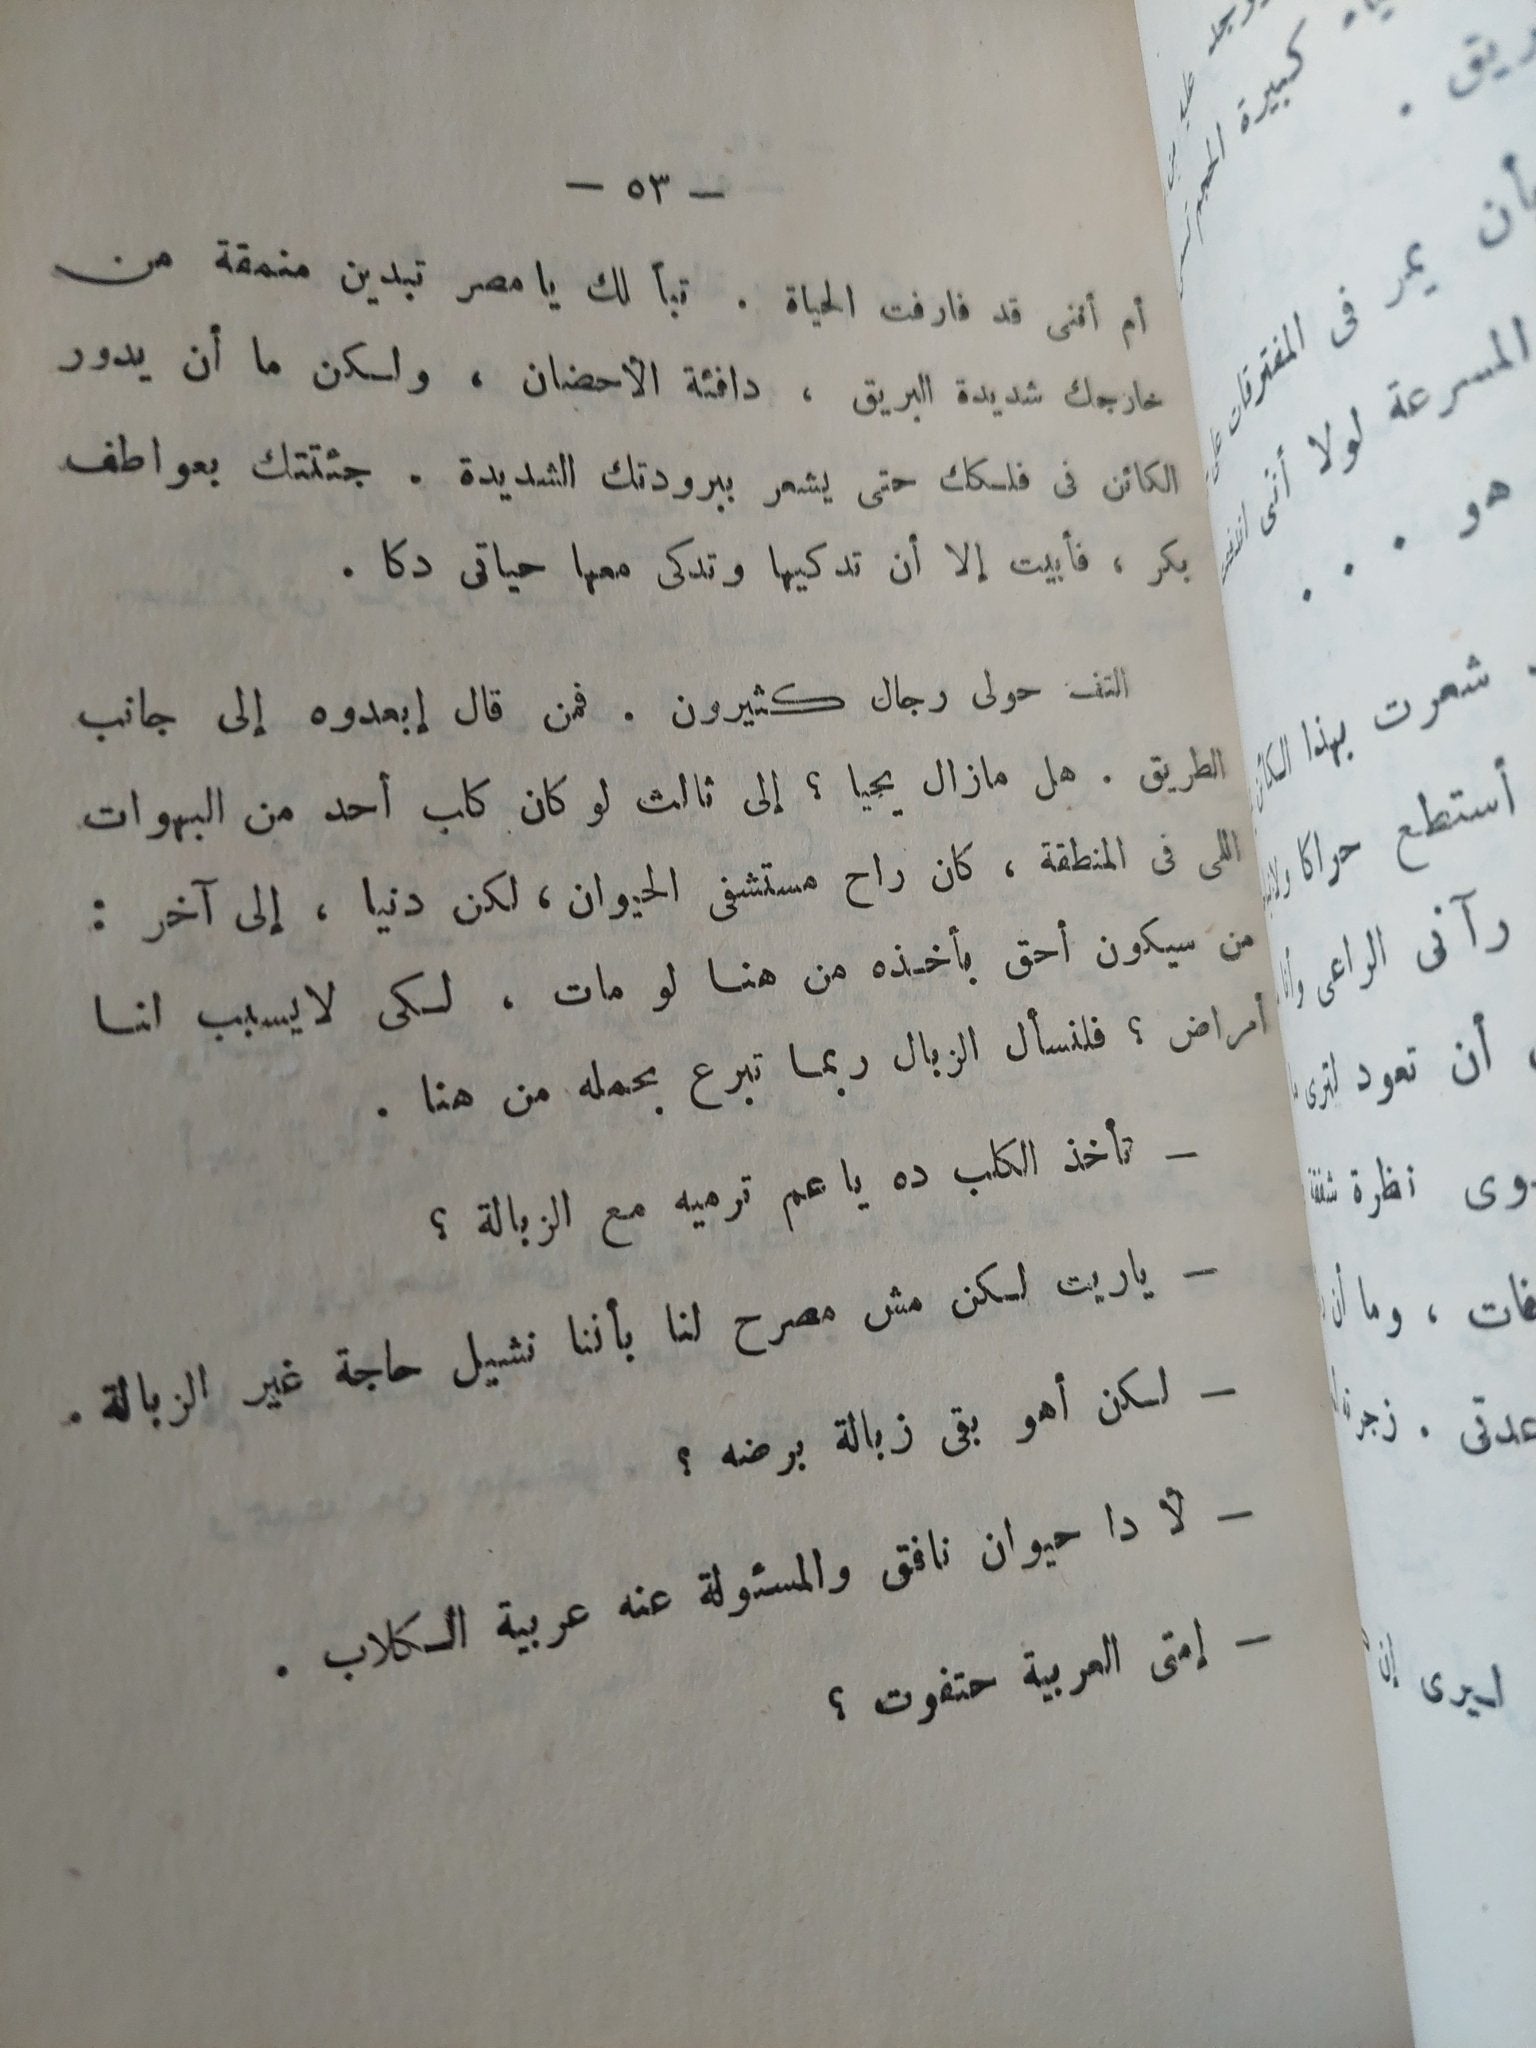 — ٥٣ —
أم أننى قد فارقت الحياة . تبأ لك يا مصر تبدين منمقة من
خارجك شديدة البريق ، دافئة الأحضان ، ولكن ما أن يدور
الكائن فى فلكك حتى يشعر ببرودتك الشديدة . جئتتك بعواطف
بكر ، فأبيت إلا أن تدكيها وتدكى معها حياتى دكا .
التف حولى رجال كثيرون . فمن قال إبعدوه إلى جانب
الطريق . هل مازال يحيا ؟ إلى ثالث لو كان كلب أحد من البهوات
اللى فى المنطقة ، كان راح مستشفى الحيوان ، لكن دنيا ، إلى آخر :
من سيكون أحق بأخذه من هنا لو مات ، لكى لايسبب لنا
أمراض ؟ فلنسأل الزبال ربما تبرع بحمله من هنا .
— تأخذ الكلب ده يا عم ترميه مع الزبالة ؟
— ياريت لكن مش مصرح لنا بأننا نشيل حاجة غير الزبالة .
— لكن أهو بقى زبالة برضه ؟
— لأ دا حيوان نافق والمسئولة عنه عربية الكلاب .
— إمتى العربية حتفوت ؟
كبيرة الحجم
يمر فى المفترقات
المسرعة لولا أننى
هو . . .
شعرت بهذا الكائن
أستطع حراكا
رآنى الراعى
أن تعود لترى
نظرة شفقة
، وما أن
. زجرته
ليرى إن